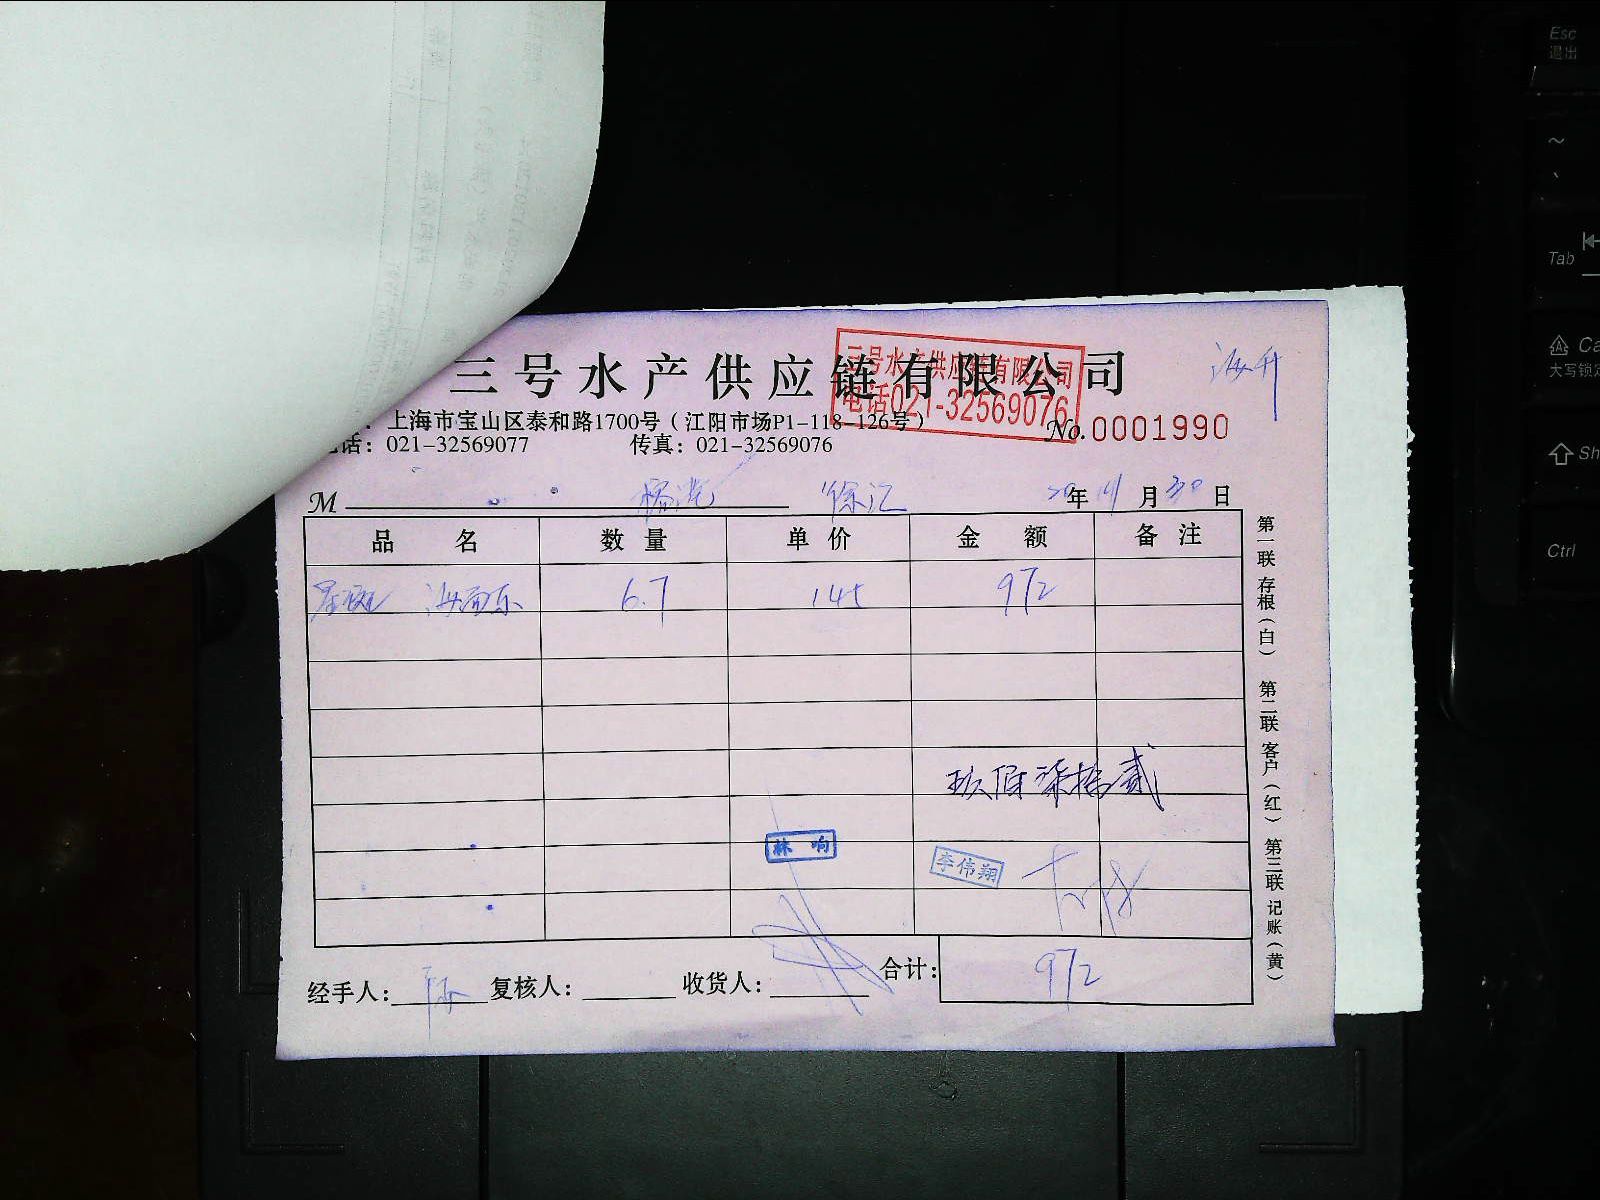 三号水产供应链有限公司
三号水产供应链有限公司
电话021-32569076
海升
：上海市宝山区泰和路1700号（江阳市场P1-118-126号）
话：021-32569077 传真：021-32569076
No.0001990
M 徐汇 20年11月30日
品名 数量 单价 金额 备注
星斑 6.7 145 972
玖佰柒拾贰
林响
李伟翔
经手人： 复核人： 收货人： 合计：972
第一联 存根（白） 第二联 客户（红） 第三联 记账（黄）
Esc
退出
~
Tab
Ca
大写锁定
Sh
Ctrl